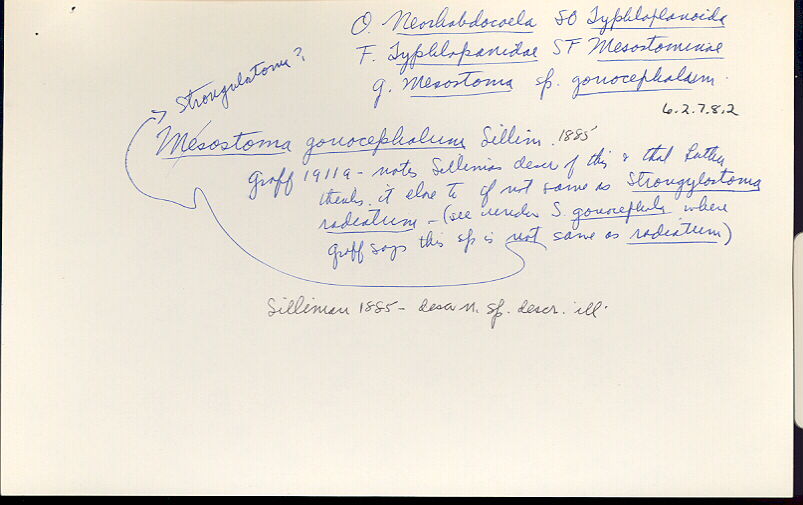 O. Neorhabdocoela SO Typhloplanoida
F. Typhlopanidae SF Mesostominae
g. Mesostoma sp. gonocephalum.
6.2.7.8.2
Strongulatoma?
Mesostoma gonocephalum Sillim. 1885
Graff 1911a - notes Sillimans descr of this & that Luther
thinks it close to if not same as Strongylostoma
radiatum - (see under S. gonocephala where
Graff says this sp is not same as radiatum)
Silliman 1885 - descr n. sp. descr. ill.